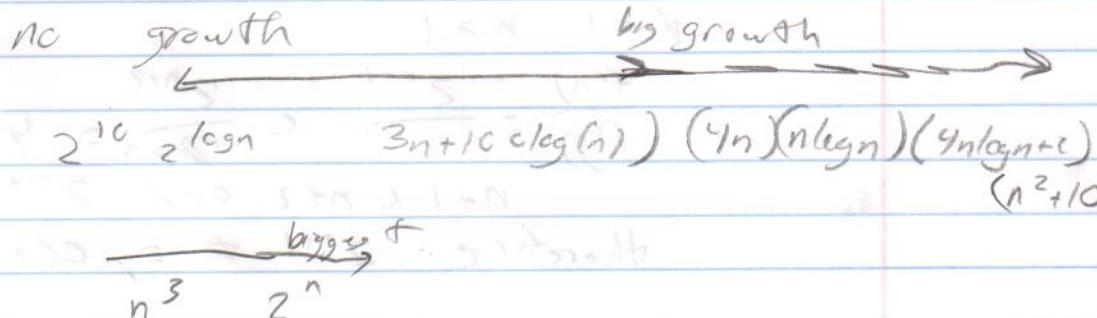 no growth big growth
2^10 2^logn 3n+10 clog(n)) (4n)(nlogn)(4nlogn+c)
(n^2+10
biggest
n^3 2^n